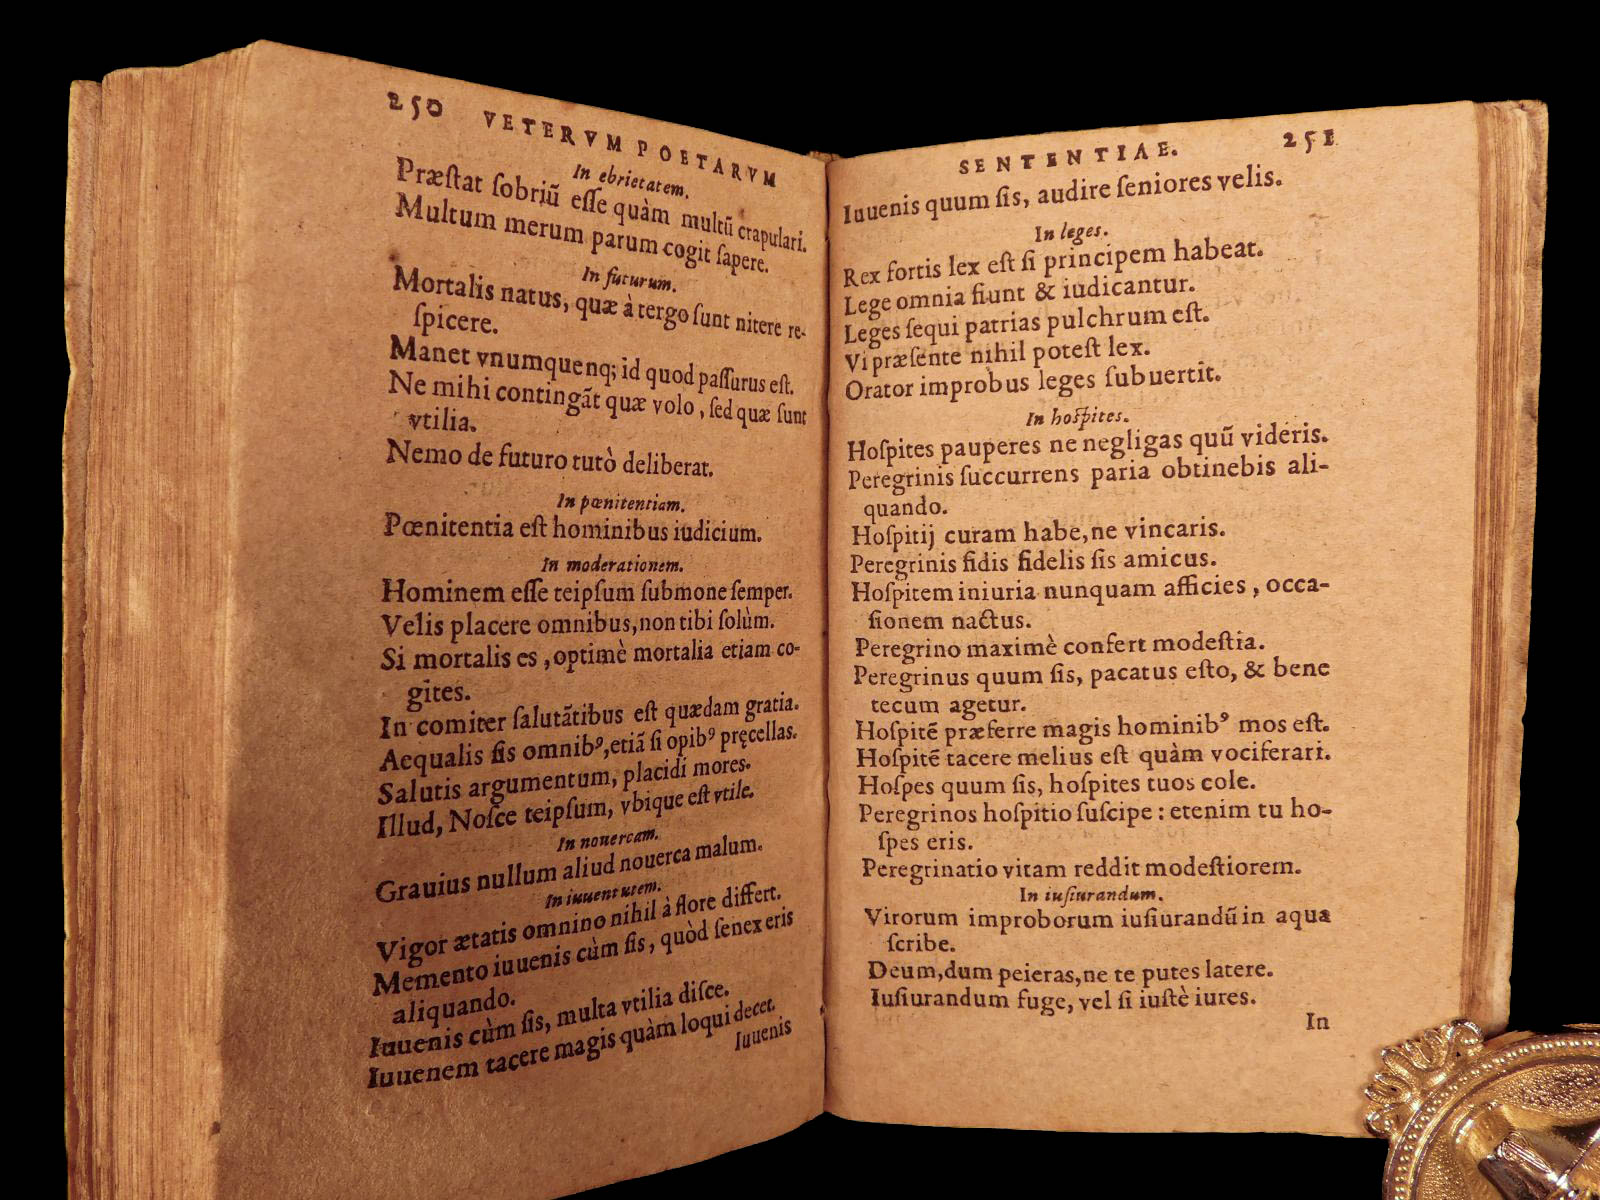 250 VETERVM POETARVM
In ebrietatem.
Præſtat ſobriũ eſſe quàm multũ crapulari.
Multum merum parum cogit ſapere.
In futurum.
Mortalis natus, quæ à tergo ſunt nitere re-
ſpicere.
Manet vnumquenq; id quod paſſurus eſt.
Ne mihi contingãt quæ volo, ſed quæ ſunt
vtilia.
Nemo de futuro tutò deliberat.
In pœnitentiam.
Pœnitentia eſt hominibus iudicium.
In moderationem.
Hominem eſſe teipſum ſubmone ſemper.
Velis placere omnibus, non tibi ſolùm.
Si mortalis es, optimè mortalia etiam co-
gites.
In comiter ſalutãtibus eſt quædam gratia.
Aequalis ſis omnibꝰ, etiã ſi opibꝰ pręcellas.
Salutis argumentum, placidi mores.
Illud, Noſce teipſum, vbique eſt vtile.
In nouercam.
Grauius nullum aliud nouerca malum.
In iuuentutem.
Vigor ætatis omnino nihil à flore differt.
Memento iuuenis cùm ſis, quòd ſenex eris
aliquando.
Iuuenis cùm ſis, multa vtilia diſce.
Iuuenem tacere magis quàm loqui decet.
Iuuenis
SENTENTIAE. 251
Iuuenis quum ſis, audire ſeniores velis.
In leges.
Rex fortis lex eſt ſi principem habeat.
Lege omnia fiunt & iudicantur.
Leges ſequi patrias pulchrum eſt.
Vi præſente nihil poteſt lex.
Orator improbus leges ſubuertit.
In hoſpites.
Hoſpites pauperes ne negligas quũ videris.
Peregrinis ſuccurrens paria obtinebis ali-
quando.
Hoſpitij curam habe, ne vincaris.
Peregrinis fidis fidelis ſis amicus.
Hoſpitem iniuria nunquam afficies, occa-
ſionem nactus.
Peregrino maximè confert modeſtia.
Peregrinus quum ſis, pacatus eſto, & bene
tecum agetur.
Hoſpitẽ præferre magis hominibꝰ mos eſt.
Hoſpitẽ tacere melius eſt quàm vociferari.
Hoſpes quum ſis, hoſpites tuos cole.
Peregrinos hoſpitio ſuſcipe: etenim tu ho-
ſpes eris.
Peregrinatio vitam reddit modeſtiorem.
In iuſiurandum.
Virorum improborum iuſiurandũ in aqua
ſcribe.
Deum, dum peieras, ne te putes latere.
Iuſiurandum fuge, vel ſi iuſtè iures.
In